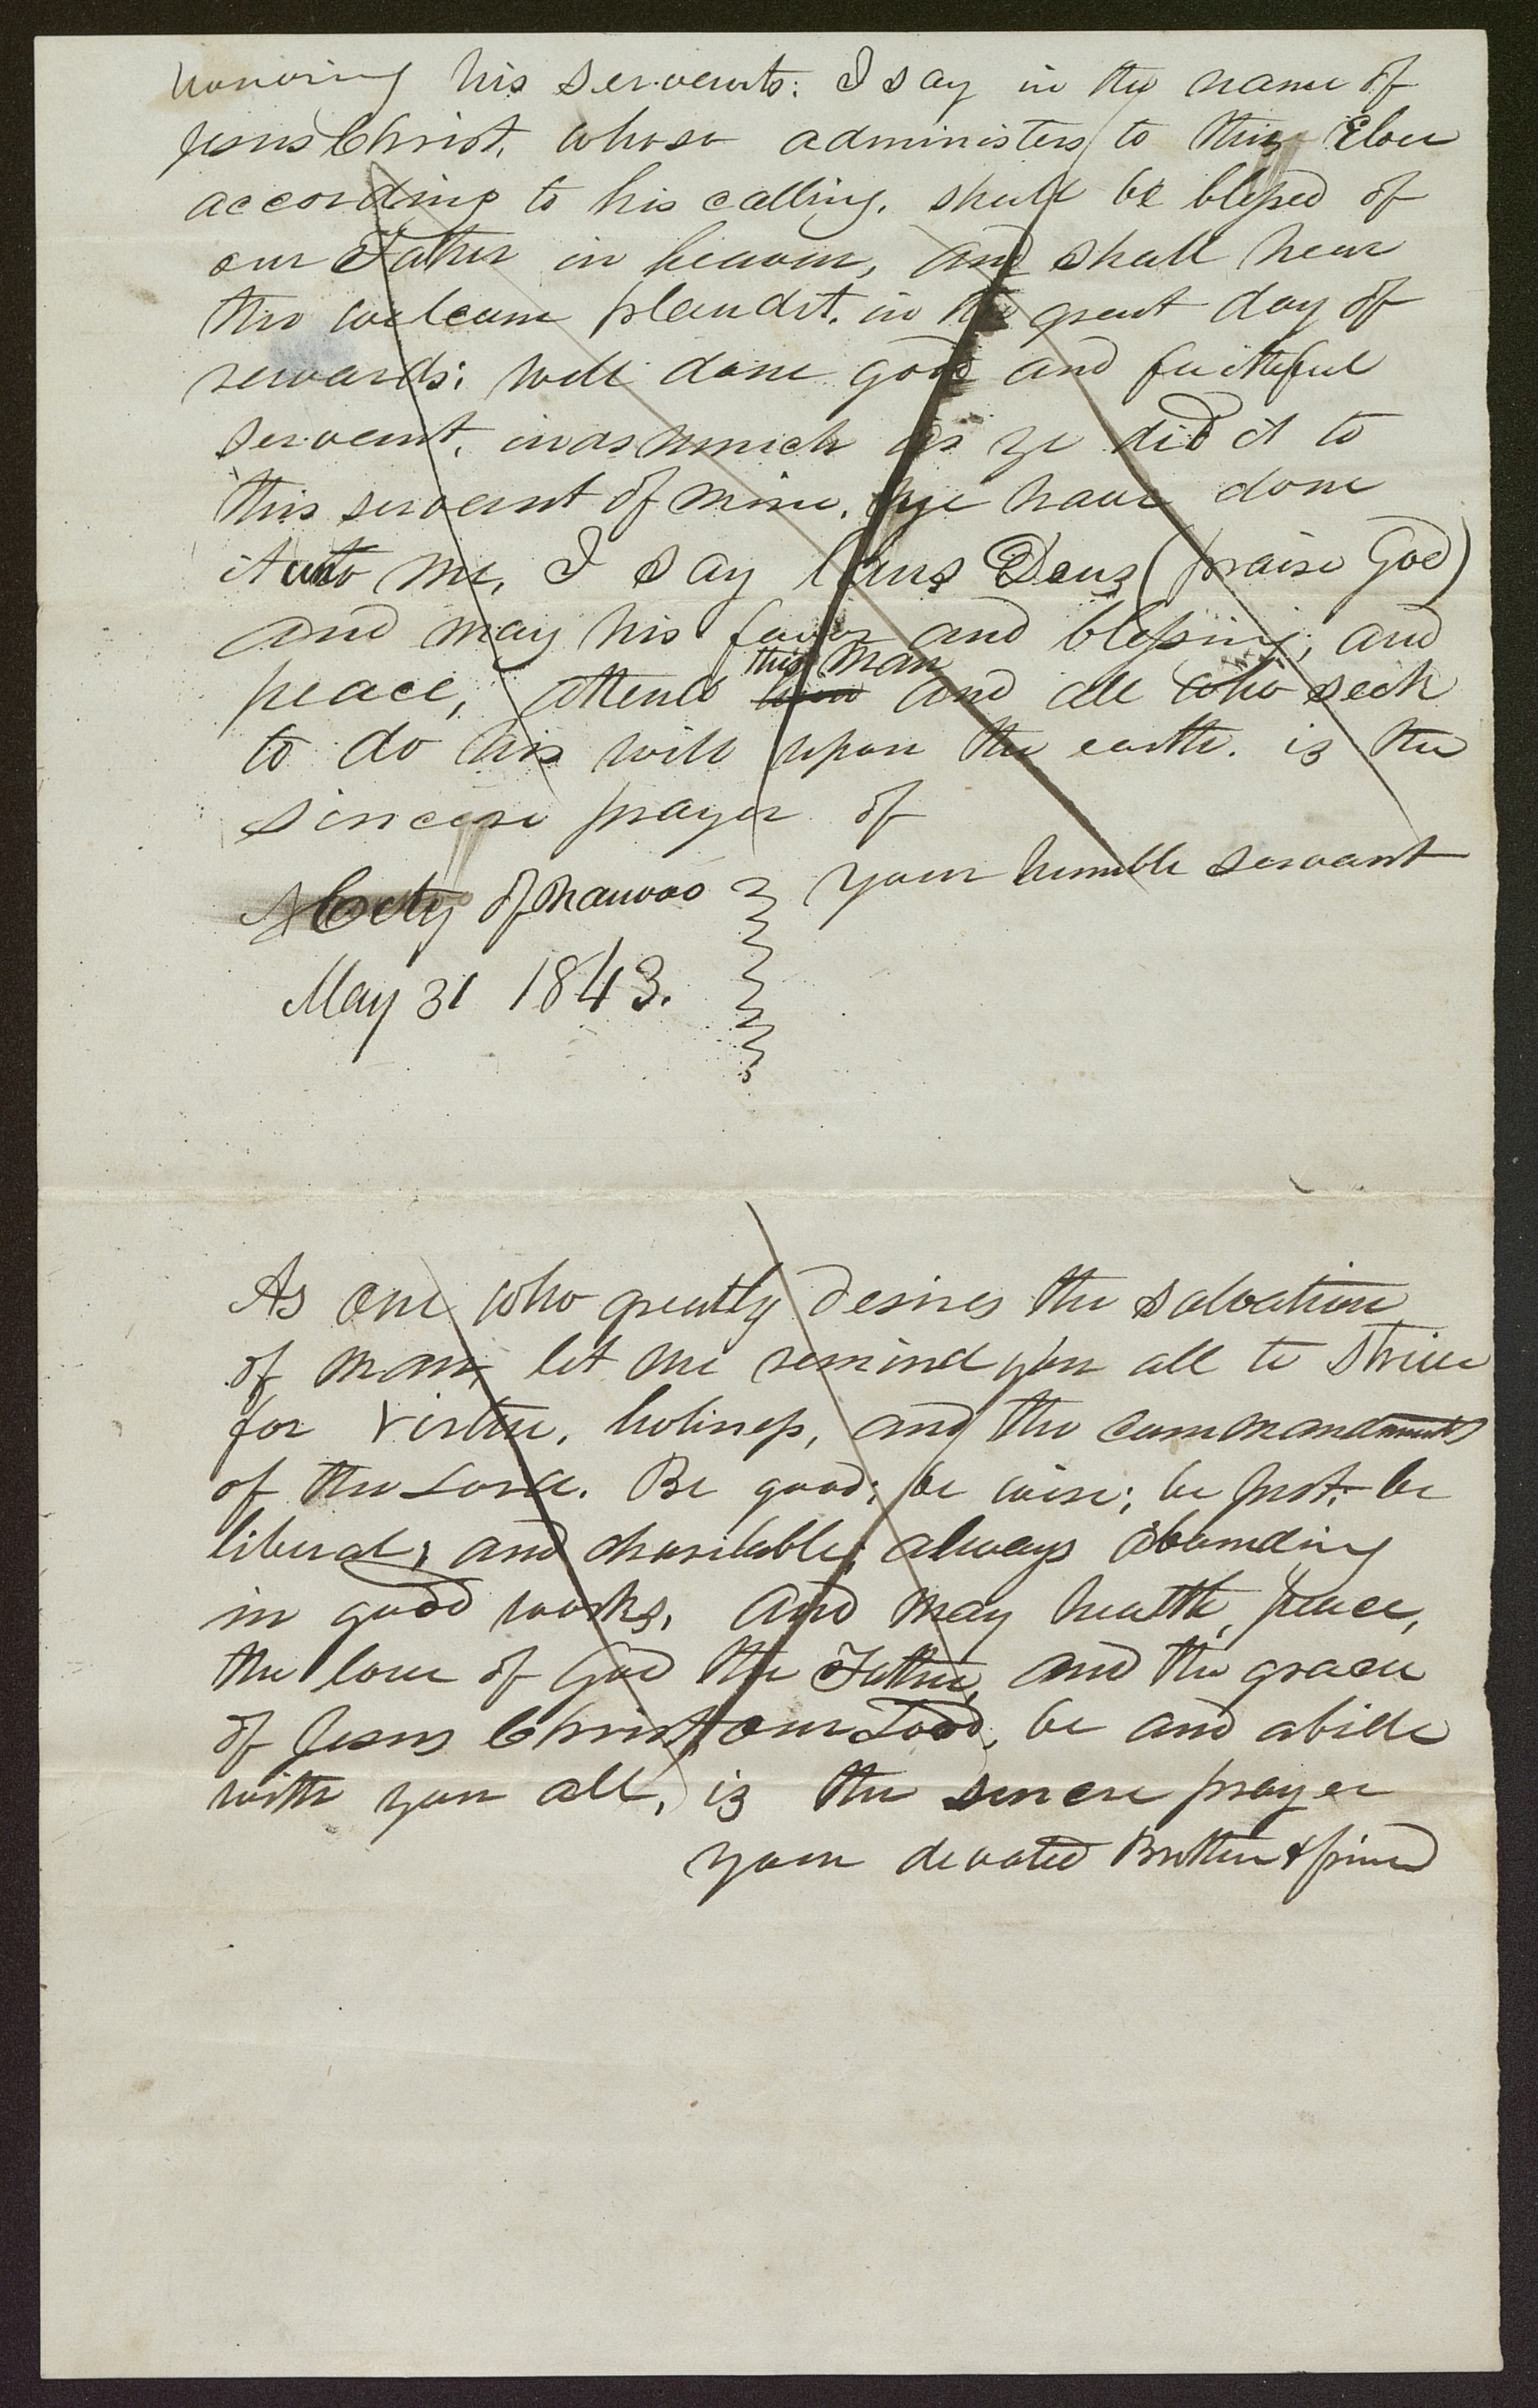 honoring his servents: I say in the name of
Jesus Christ, whoso administers to this Elder
according to his calling, shall be blessed of
our Father in heaven, and shall hear
the welcom plaudit, in the great day of
rewards; well done good and faithful
servent, inasmuch as ye did it to
this servent of mine, ye have done
it unto me, I say laus Deus (praise God)
and may his favor and blessing, and
this man
peace, attend him and all who seek
to do his will upon the earth. is the
sincere prayer of
your humble servant
City of Nauvoo
May 31 1843.
As one who greatly desires the salvation
of man, let me remind you all to strive
for virtue, holiness, and the commandments
of the Lord. Be good; be wise; be just; be
liberal; and charitable; always abounding
in good works. And may health, peace,
the love of God the Father, and the grace
of Jesus Christ our Lord, be and abide
with you all, is the sincere prayer
your devoted Brother & friend